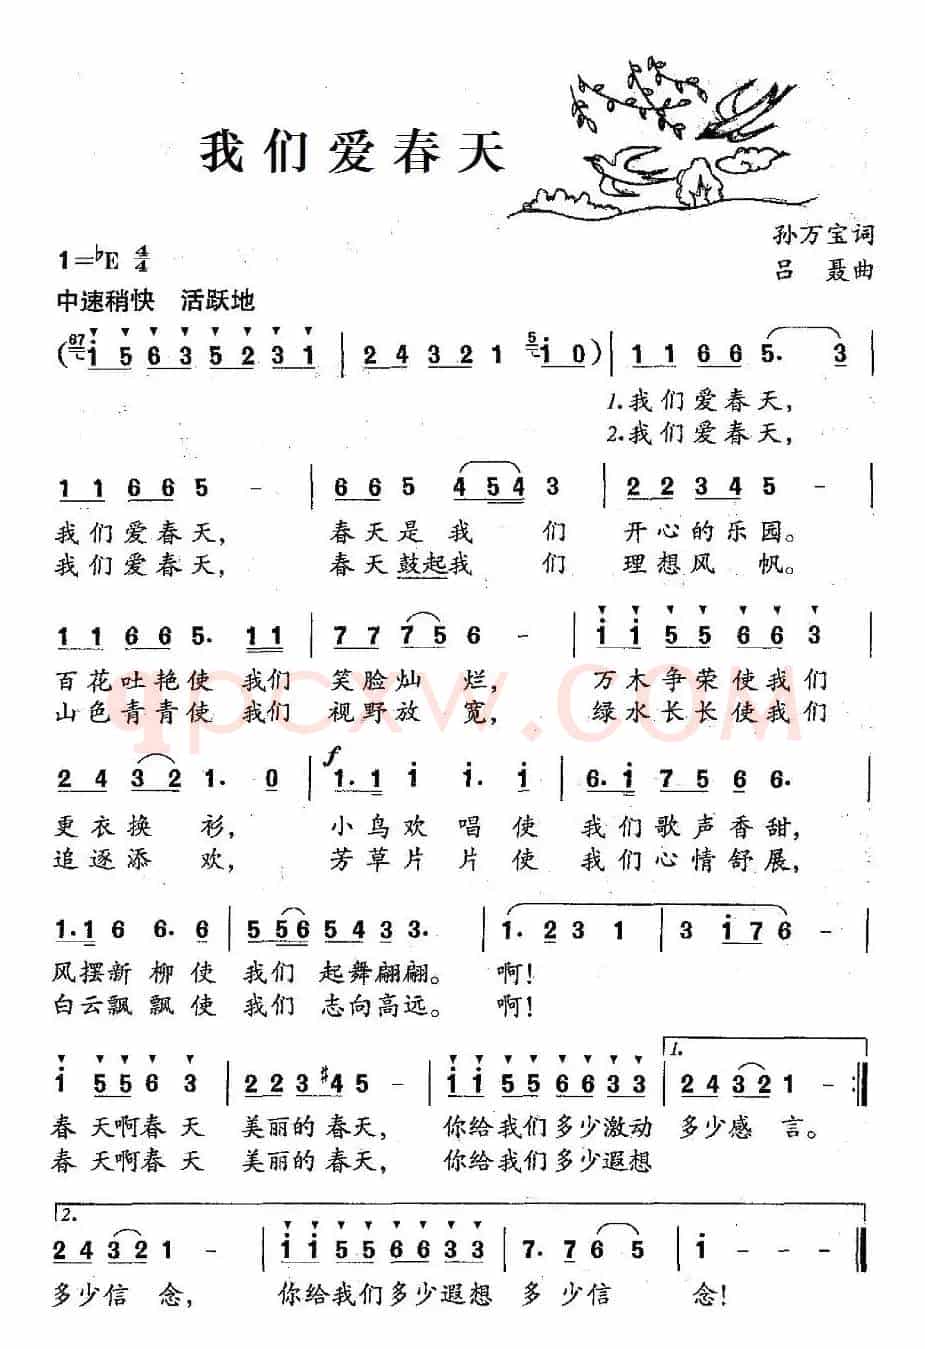 我们爱春天
孙万宝词
1=♭E 4/4
吕 聂曲
中速稍快 活跃地
(67 i 5 6 3 5 2 3 1 | 2 4 3 2 1 5 i 0) | 1 1 6 6 5. 3 |
1.我们爱春天,
2.我们爱春天,
1 1 6 6 5 - | 6 6 5 4 5 4 3 | 2 2 3 4 5 - |
我们爱春天, 春天是我 们 开心的乐园。
我们爱春天, 春天鼓起我 们 理想风 帆。
1 1 6 6 5. 1 1 | 7 7 7 5 6 - | i i 5 5 6 6 3 |
百花吐艳使 我们 笑脸灿 烂, 万木争荣使我们
山色青青使 我们 视野放 宽, 绿水长长使我们
qpcxw.COM
2 4 3 2 1. 0 | f 1. 1 i i. i | 6. i 7 5 6 6. |
更衣换 衫, 小鸟欢 唱 使 我们歌声香甜,
追逐添 欢, 芳草片 片 使 我们心情舒展,
1. 1 6 6. 6 | 5 5 6 5 4 3 3. | 1. 2 3 1 | 3 i 7 6 - |
风摆新 柳 使 我们 起舞翩翩。 啊!
白云飘 飘 使 我们 志向高远。 啊!
1.
i 5 5 6 3 | 2 2 3 #4 5 - | i i 5 5 6 6 3 3 | 2 4 3 2 1 - :|
春 天啊春 天 美丽的 春天, 你给我们多少激动 多少感 言。
春 天啊春 天 美丽的 春天, 你给我们多少遐想
2.
2 4 3 2 1 - | i i 5 5 6 6 3 3 | 7. 7 6 5 | i - - - |
多少信 念, 你给我们多少遐想 多 少信 念!